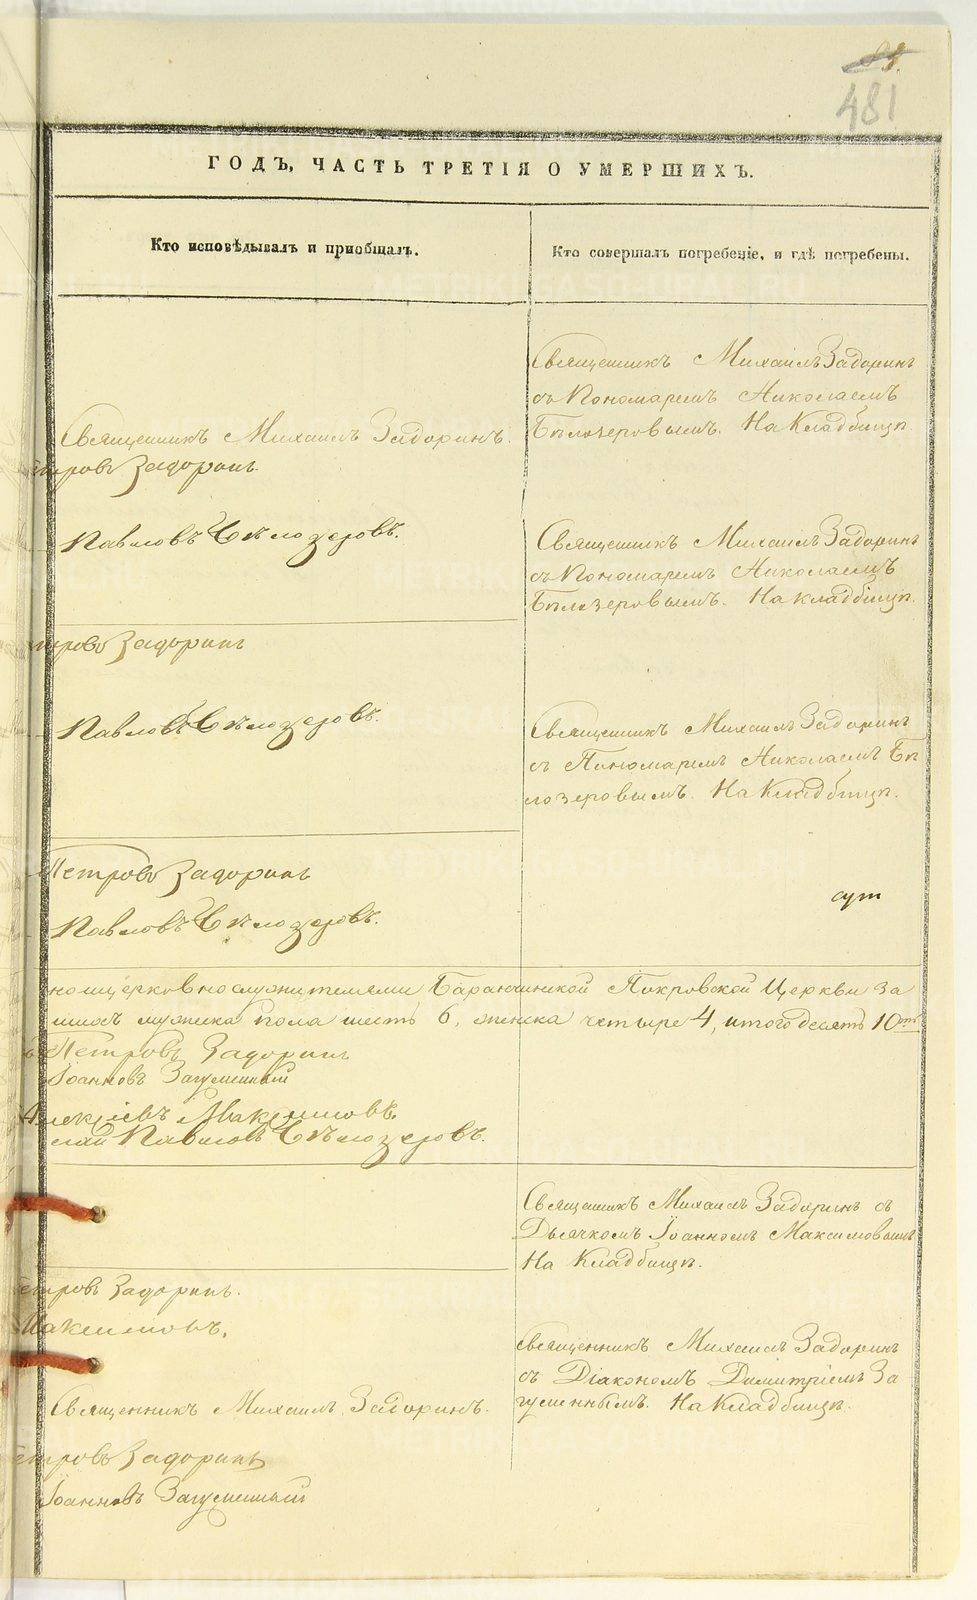 481
ГОДЪ, ЧАСТЬ ТРЕТІЯ О УМЕРШИХЪ.
Кто исповѣдывалъ и пріобщалъ.
Кто совершалъ погребеніе, и гдѣ погребены.
Священникъ Михаилъ Задоринъ
съ Пономаремъ Николаемъ
Бѣлозеровымъ. На Кладбищѣ.
Священникъ Михаилъ Задоринъ.
Петровъ Задоринъ.
Павловъ Бѣлозеровъ.
Священникъ Михаилъ Задоринъ
съ Пономаремъ Николаемъ
Бѣлозеровымъ. На кладбищѣ.
етровъ Задоринъ
Павловъ Бѣлозеровъ.
Священникъ Михаилъ Задоринъ
съ Пономаремъ Николаемъ Бѣ
лозеровымъ. На Кладбищѣ.
Петровъ Задоринъ
Павловъ Бѣлозеровъ.
сут
ноцерковнослужителями Баранчинской Покровской Церкви за
мужеска пола шесть 6, женска четыре 4, итого десять 10ть
Петровъ Задоринъ
Іоанновъ Загуменный
Алексѣевъ Максимовъ.
олай Павловъ Бѣлозеровъ.
Священникъ Михаилъ Задоринъ съ
Дьячкомъ Іоанномъ Максимовымъ
На Кладбищѣ.
Петровъ Задоринъ.
Максимовъ.
Священникъ Михаилъ Задоринъ
съ Діакономъ Димитріемъ За
гуменнымъ. На Кладбищѣ.
Священникъ Михаилъ Задоринъ.
етровъ Задоринъ
Іоанновъ Загуменный
METRIKI.GASO-URAL.RU